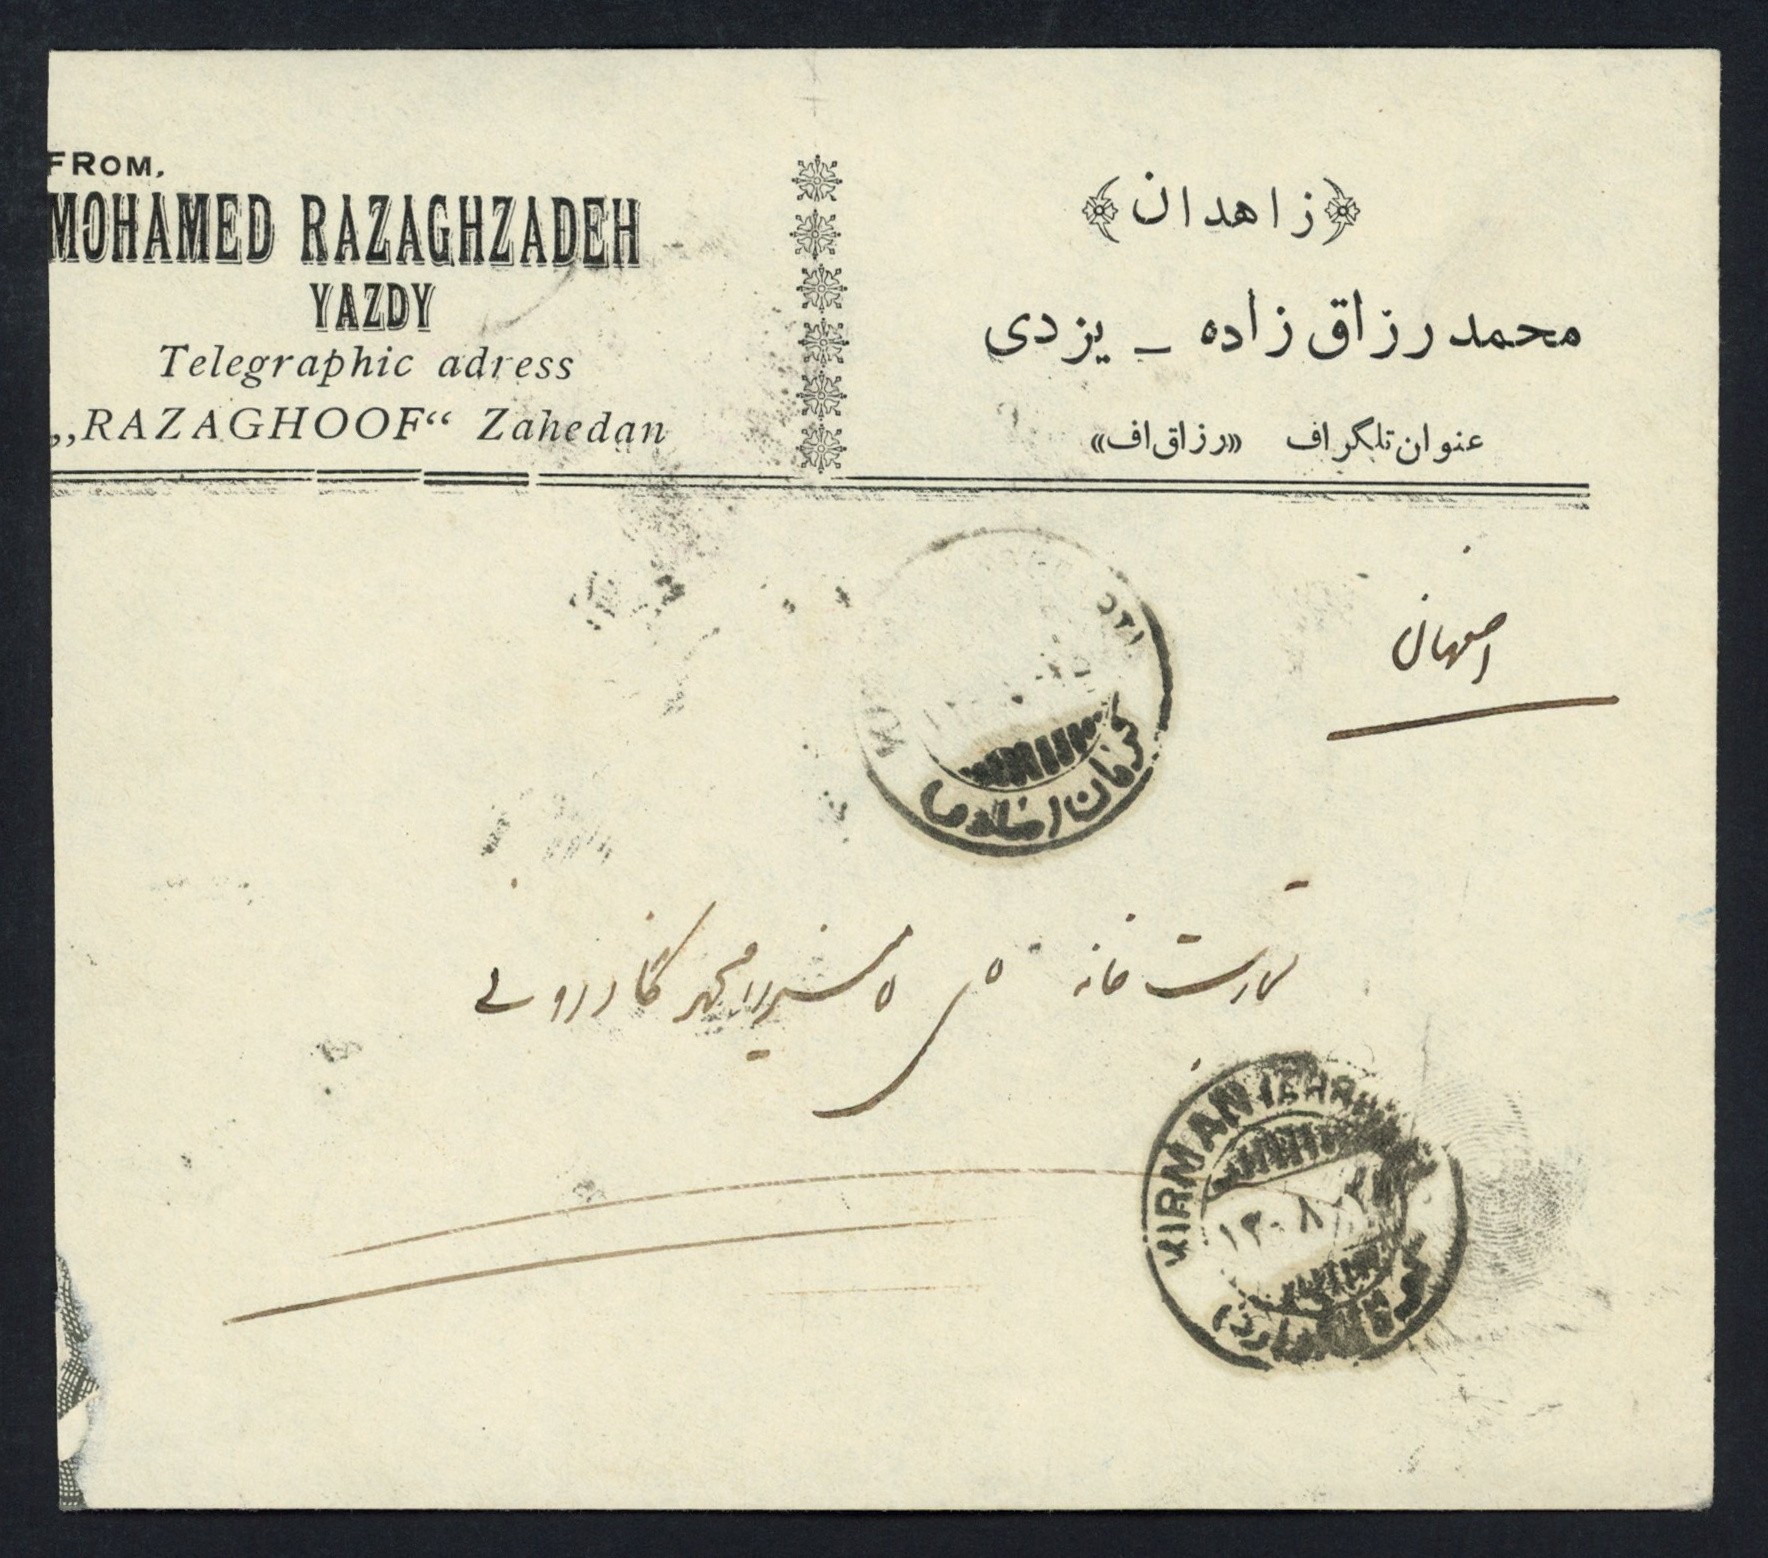 FROM,
MOHAMED RAZAGHZADEH
YAZDY
Telegraphic adress
„RAZAGHOOF“ Zahedan
زاهدان
محمد رزاق زاده ـ یزدی
عنوان تلگراف «رزاق اف»
اصفهان
کرمان
تجارت خانه محمد کازرونی
KIRMAN
۸